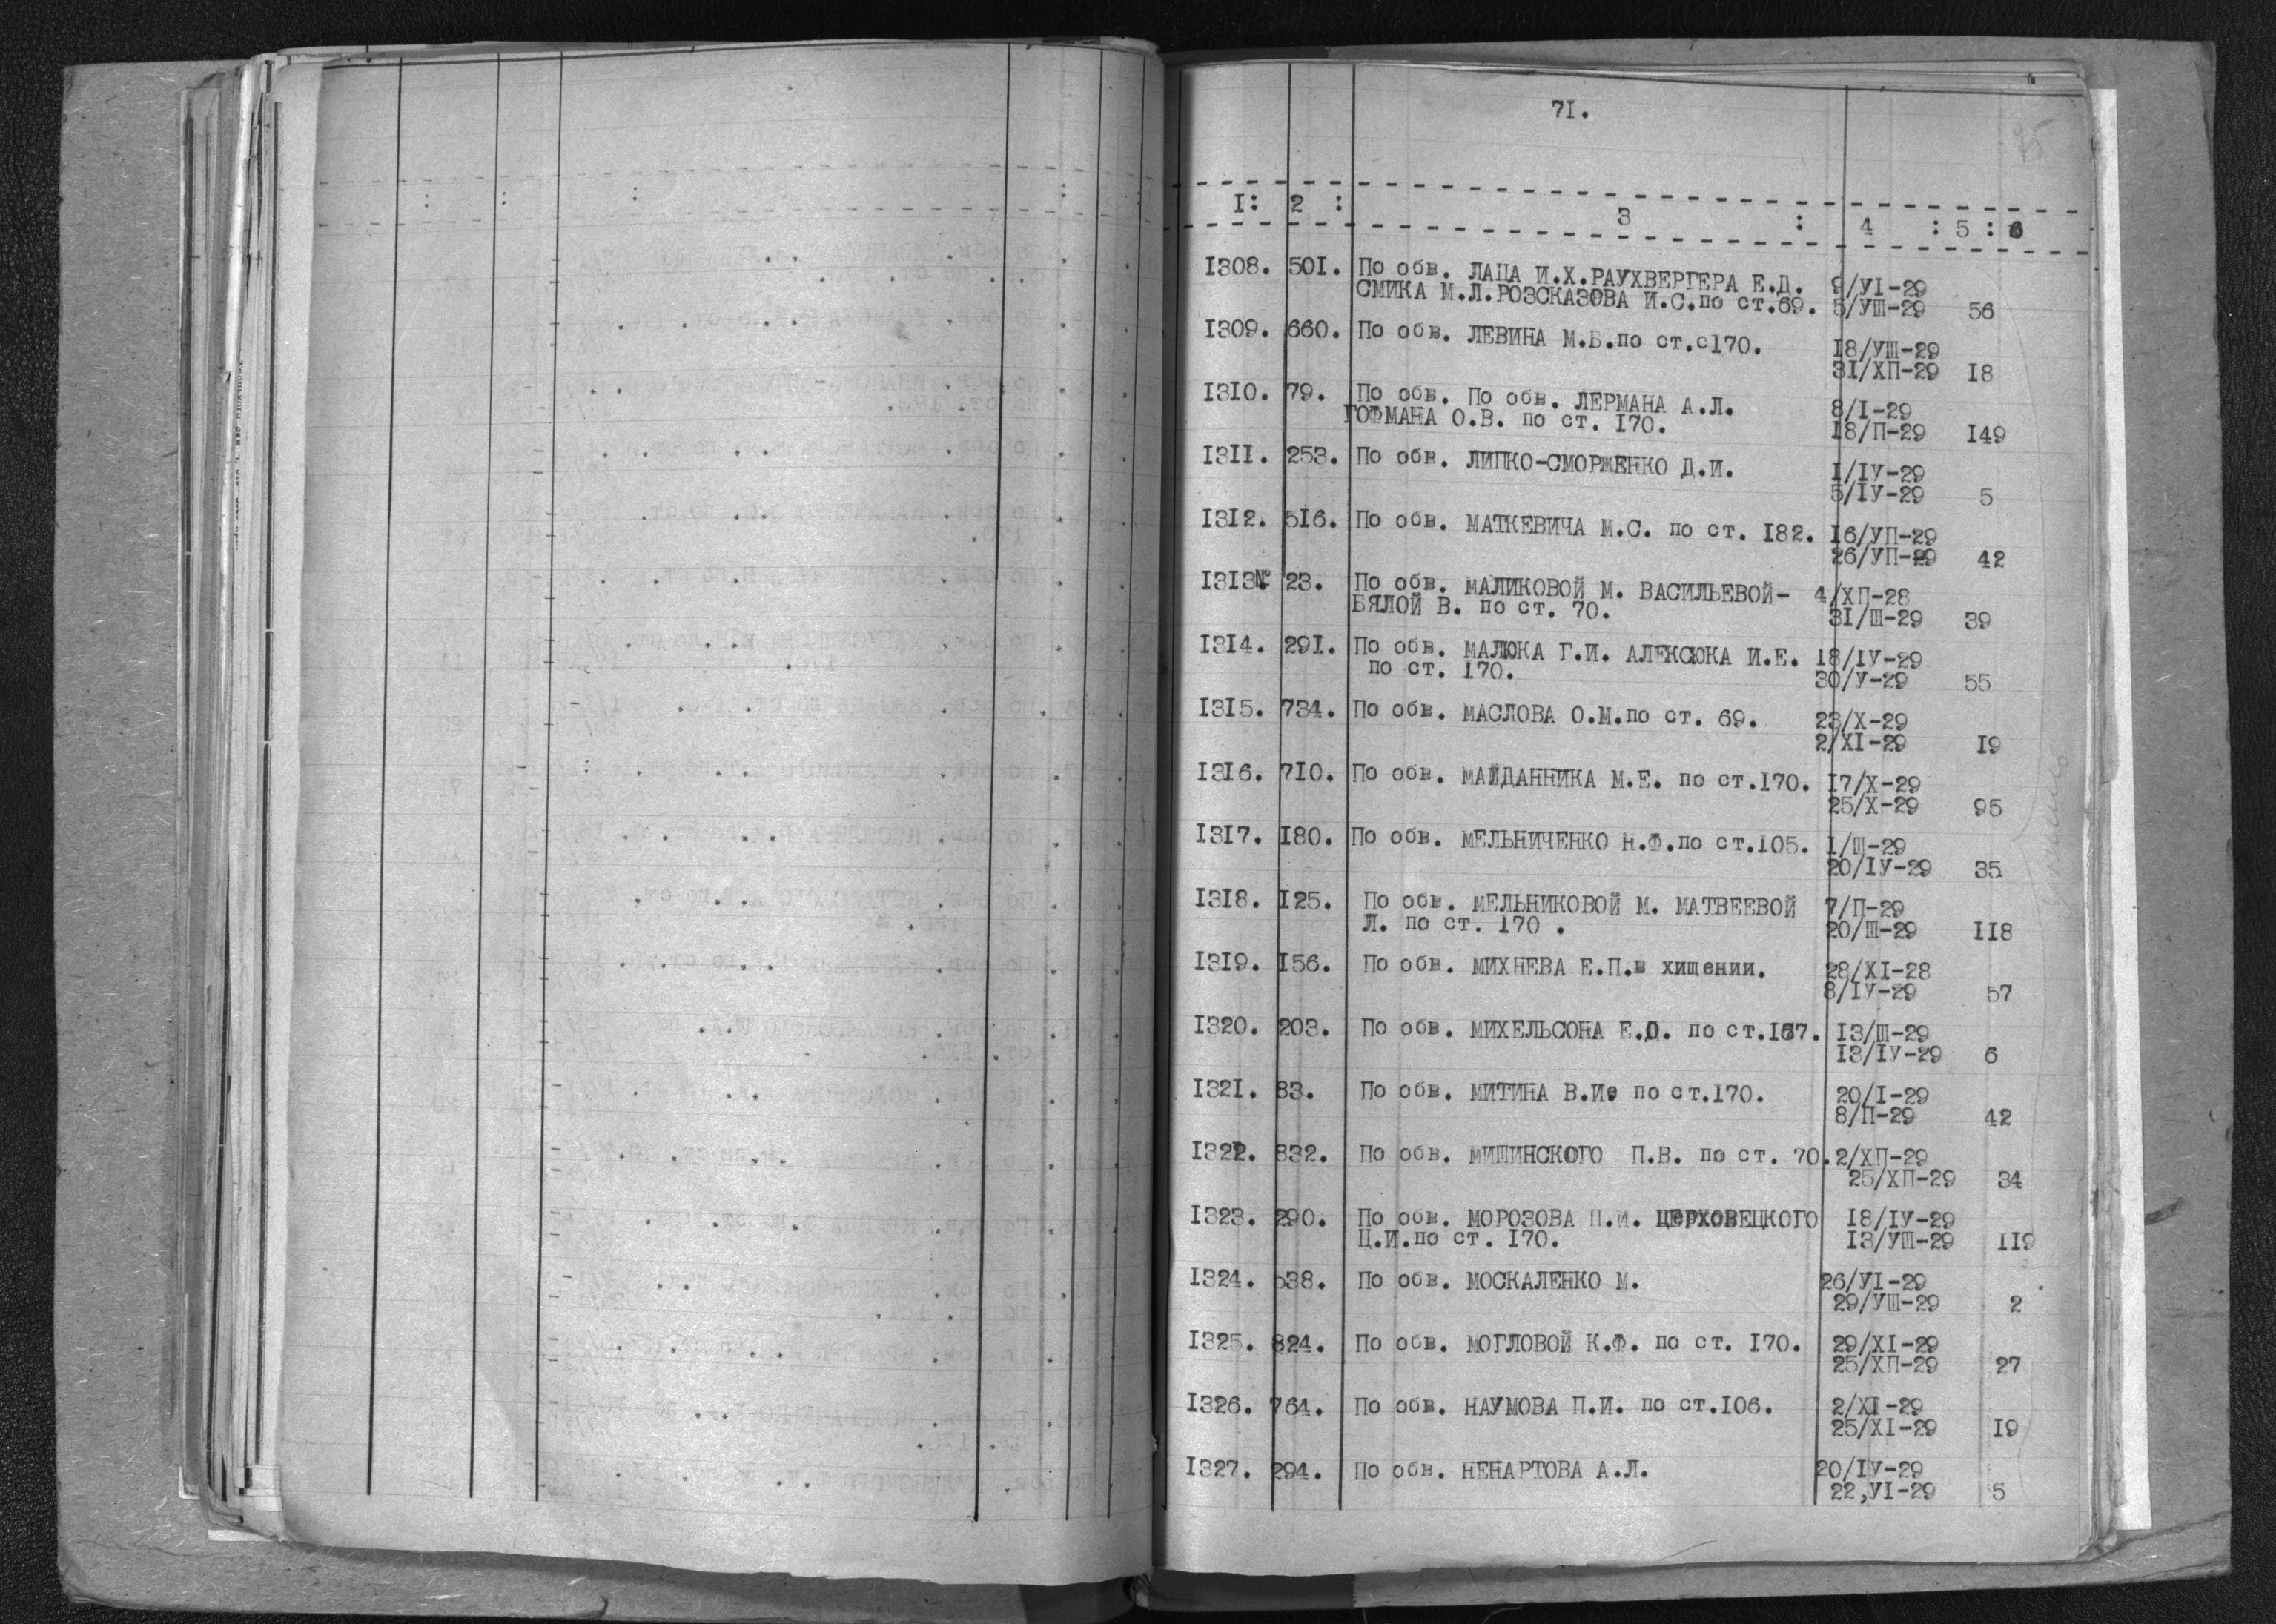 71.
I: 2 : 3 : 4 : 5 : 6
I308. 501. По обв. ЛАЦА И.Х.РАУХВЕРГЕРА Е.Д. 9/УI-29
СМИКА М.Л.РОЗСКАЗОВА И.С.по ст.69. 5/УШ-29 56
I309. 660. По обв. ЛЕВИНА М.Б.по ст.с170. 18/УШ-29
31/ХП-29 I8
I3I0. 79. По обв. По обв. ЛЕРМАНА А.Л. 8/I-29
ГОФМАНА О.В. по ст. I70. I8/П-29 I49
I3II. 253. По обв. ЛИПКО-СМОРЖЕНКО Д.И. I/IУ-29
5/IУ-29 5
I3I2. 516. По обв. МАТКЕВИЧА М.С. по ст. I82. I6/УП-29
26/УП-29 42
I3I3№ 23. По обв. МАЛИКОВОЙ М. ВАСИЛЬЕВОЙ- 4/ХП-28
БЯЛОЙ В. по ст. 70. 3I/Ш-29 39
I3I4. 29I. По обв. МАЛЮКА Г.И. АЛЕКСЮКА И.Е. I8/IУ-29
по ст. I70. 30/У-29 55
I3I5. 734. По обв. МАСЛОВА О.М.по ст. 69. 23/Х-29
2/ХI-29 I9
I3I6. 7I0. По обв. МАЙДАННИКА М.Е. по ст.I70. I7/Х-29
25/Х-29 95
I3I7. I80. По обв. МЕЛЬНИЧЕНКО Н.Ф.по ст.I05. I/Ш-29
20/IУ-29 35
I3I8. I25. По обв. МЕЛЬНИКОВОЙ М. МАТВЕЕВОЙ 7/П-29
Л. по ст. I70 . 20/Ш-29 II8
I3I9. I56. По обв. МИХНЕВА Е.П.в хищении. 28/ХI-28
8/IУ-29 57
I320. 203. По обв. МИХЕЛЬСОНА Е.О. по ст.I67. I3/Ш-29
I3/IУ-29 6
I32I. 83. По обв. МИТИНА В.Ие по ст.I70. 20/I-29
8/П-29 42
I322. 832. По обв. МИШИНСКОГО П.В. по ст. 70. 2/ХП-29
25/ХП-29 34
I323. 290. По обв. МОРОЗОВА П.И. ЦЕРХОВЕЦКОГО I8/IУ-29
Ц.И.по ст. I70. I3/УШ-29 II9
I324. 538. По обв. МОСКАЛЕНКО М. 26/УI-29
29/УШ-29 2
I325. 824. По обв. МОГЛОВОЙ К.Ф. по ст. I70. 29/ХI-29
25/ХП-29 27
I326. 764. По обв. НАУМОВА П.И. по ст.I06. 2/ХI-29
25/ХI-29 I9
I327. 294. По обв. НЕНАРТОВА А.Л. 20/IУ-29
22,УI-29 5